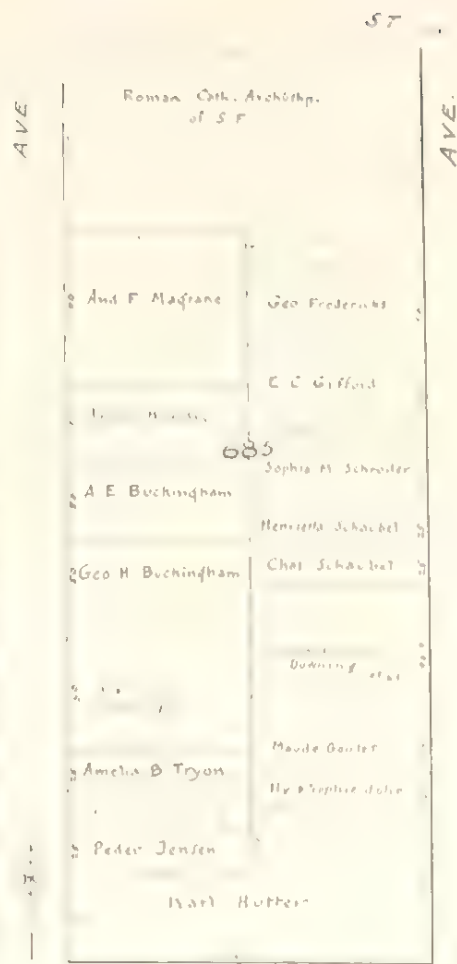 ST
AVE
AVE.
Roman Cath. Archbhp.
of S F
And F Magrane
Geo Fredericks
E C Gifford
685
Sophia M Schroder
A E Buckingham
Henrietta Schaubel
Geo H Buckingham
Chas Schaubel
Downing et al
Maude Goulet
Amelia B Tryon
Hy & Sophie
Peder Jensen
Karl Hutter